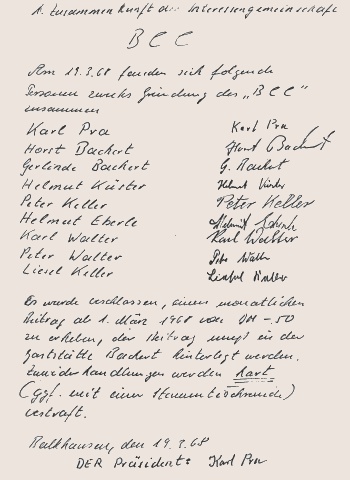 1. Zusammenkunft der Interessengemeinschaft
BCC
Am 19.3.68 fanden sich folgende
Personen zwecks Gründung des „BCC"
zusammen
Karl Pra Karl Pra
Horst Backert Horst Backert
Gerlinde Backert G. Backert
Helmut Küster Helmut Küster
Peter Keller Peter Keller
Helmut Eberle Helmut
Karl Walter Karl Walter
Peter Walter Peter Walter
Liesel Keller Keller
Es wurde beschlossen, einen monatlichen
Beitrag ab 1. März 1968 von DM -.50
zu erheben, der Beitrag muß in der
Gaststätte Backert hinterlegt werden.
Zuwiderhandlungen werden hart
(ggf. mit einer)
bestraft.
den 19.3.68
DER Präsident: Karl Pra